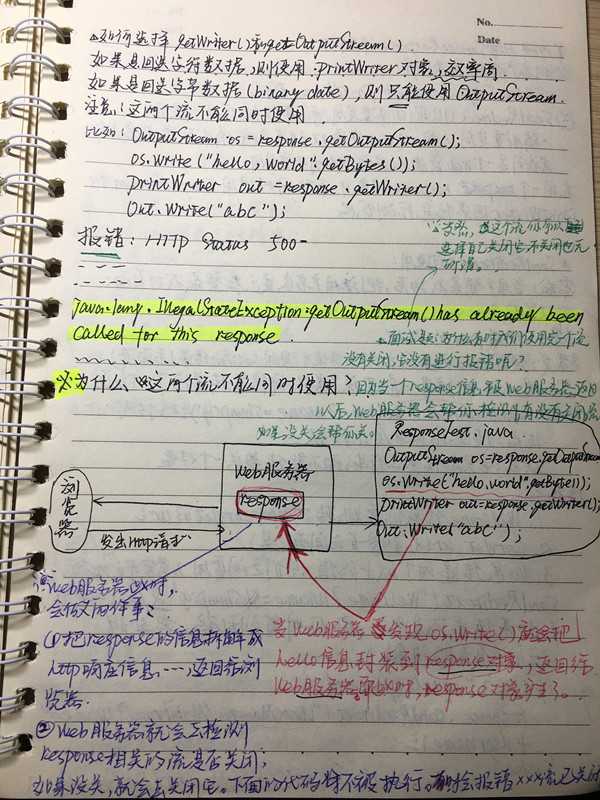 No.
Date
如何选择getWriter()和getOutputStream()
如果是回送字符数据,则使用PrintWriter对象,效率高
如果是回送字节数据(binary date),则只能使用OutputStream
注意:这两个流不能同时使用
比如:OutputStream os=response.getOutputStream();
os.write("hello,world".getBytes());
PrintWriter out=response.getWriter();
Out.write("abc");
报错:HTTP Status 500-
这个流你可以
选择自己关闭它,不关闭也无
所谓。
java.lang.IllegalStateException:getOutputStream()has already been
called for this response
面试题:为什么有时我们使用完个流
没有关闭,它没有进行报错呢?
※为什么,这两个流不能同时使用?
因为当一个response信息被Web服务器返回
以后,Web服务器会帮你检测有没有关闭流
如果没关会帮你关。
ResponseTest.java
OutputStream os=response.getOutputStream
os.write("hello,world".getBytes());
PrintWriter out=response.getWriter();
Out.write("abc");
Web服务器
response
浏览器
发出Http请求
Web服务器此时,
会做两件事:
①把response的信息拆解成
http响应信息……,返回给浏
览器.
②Web服务器就会去检测
Response相关的流是否关闭;
如果没关,就会去关闭它。下面的代码将不被执行。有时会报错×××流已关闭
当Web服务器发现os.write()就会把
hello信息封装到response对象,返回给
Web服务器,那此时,response对象